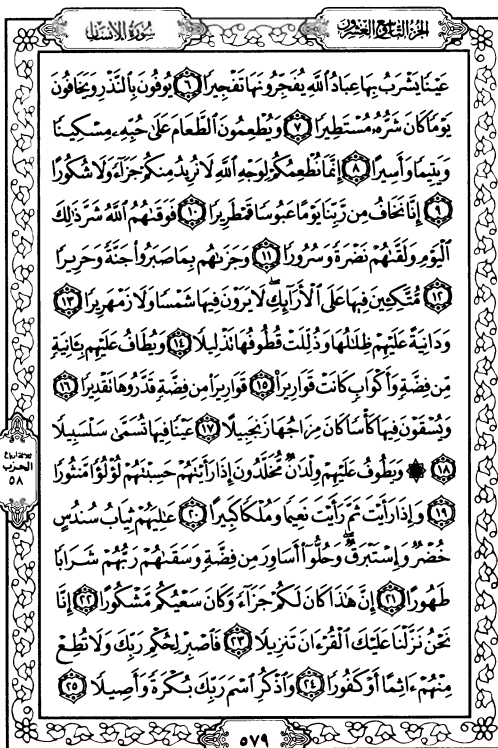 الجزء التاسع والعشرون
سورة الإنسان
عَيْنًا يَشْرَبُ بِهَا عِبَادُ اللَّهِ يُفَجِّرُونَهَا تَفْجِيرًا ٦ يُوفُونَ بِالنَّذْرِ وَيَخَافُونَ
يَوْمًا كَانَ شَرُّهُ مُسْتَطِيرًا ٧ وَيُطْعِمُونَ الطَّعَامَ عَلَىٰ حُبِّهِ مِسْكِينًا
وَيَتِيمًا وَأَسِيرًا ٨ إِنَّمَا نُطْعِمُكُمْ لِوَجْهِ اللَّهِ لَا نُرِيدُ مِنكُمْ جَزَاءً وَلَا شُكُورًا
٩ إِنَّا نَخَافُ مِن رَّبِّنَا يَوْمًا عَبُوسًا قَمْطَرِيرًا ١٠ فَوَقَىٰهُمُ اللَّهُ شَرَّ ذَٰلِكَ
الْيَوْمِ وَلَقَّىٰهُمْ نَضْرَةً وَسُرُورًا ١١ وَجَزَىٰهُم بِمَا صَبَرُوا جَنَّةً وَحَرِيرًا
١٢ مُّتَّكِئِينَ فِيهَا عَلَى الْأَرَائِكِ ۖ لَا يَرَوْنَ فِيهَا شَمْسًا وَلَا زَمْهَرِيرًا ١٣
وَدَانِيَةً عَلَيْهِمْ ظِلَٰلُهَا وَذُلِّلَتْ قُطُوفُهَا تَذْلِيلًا ١٤ وَيُطَافُ عَلَيْهِم بِـَٔانِيَةٍ
مِّن فِضَّةٍ وَأَكْوَابٍ كَانَتْ قَوَارِيرَا۠ ١٥ قَوَارِيرَا۟ مِن فِضَّةٍ قَدَّرُوهَا تَقْدِيرًا ١٦
وَيُسْقَوْنَ فِيهَا كَأْسًا كَانَ مِزَاجُهَا زَنجَبِيلًا ١٧ عَيْنًا فِيهَا تُسَمَّىٰ سَلْسَبِيلًا
١٨ ۞ وَيَطُوفُ عَلَيْهِمْ وِلْدَٰنٌ مُّخَلَّدُونَ إِذَا رَأَيْتَهُمْ حَسِبْتَهُمْ لُؤْلُؤًا مَّنثُورًا
١٩ وَإِذَا رَأَيْتَ ثَمَّ رَأَيْتَ نَعِيمًا وَمُلْكًا كَبِيرًا ٢٠ عَٰلِيَهُمْ ثِيَابُ سُندُسٍ
خُضْرٌ وَإِسْتَبْرَقٌ ۖ وَحُلُّوا أَسَاوِرَ مِن فِضَّةٍ وَسَقَىٰهُمْ رَبُّهُمْ شَرَابًا
طَهُورًا ٢١ إِنَّ هَٰذَا كَانَ لَكُمْ جَزَاءً وَكَانَ سَعْيُكُم مَّشْكُورًا ٢٢ إِنَّا
نَحْنُ نَزَّلْنَا عَلَيْكَ الْقُرْءَانَ تَنزِيلًا ٢٣ فَاصْبِرْ لِحُكْمِ رَبِّكَ وَلَا تُطِعْ
مِنْهُمْ ءَاثِمًا أَوْ كَفُورًا ٢٤ وَاذْكُرِ اسْمَ رَبِّكَ بُكْرَةً وَأَصِيلًا ٢٥
ثلاثة أرباع
الحزب
٥٨
٥٧٩